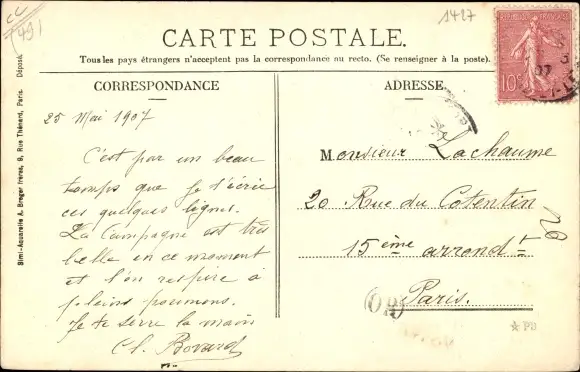 CC
(49)
1427
CARTE POSTALE.
Tous les pays étrangers n'acceptent pas la correspondance au recto. (Se renseigner à la poste).
CORRESPONDANCE
25 Mai 1907
C'est par un beau
temps que je t'écris
ces quelques lignes.
La Campagne est très
belle en ce moment
et l'on respire à
pleins poumons.
Je te serre la main
Ch. Bovard
ADRESSE
Monsieur Lachaume
20 Rue du Cotentin
15ème arrondt
Paris.
20
OR
10c
07
★ PS
Simi-Aquarelle A. Breger frères, 9, Rue Thénard, Paris. Déposé